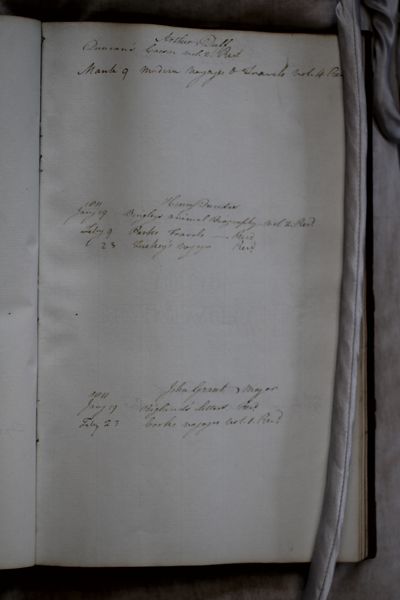 Arthur
Duncan's Caesar vol. 2. Recd
March 9 Modern Voyages & Travels vol. 4 Re
1811 Henry Dundas
Jany 19 Bingleys animal Biography vol 2. Recd
Feby 9 Parks Travels — Recd
" 23 Tuckey's voyage Recd
1811 John Grant Major
Jany 19 Highland Recd
Feby 23 Cooks voyages vol. 1. Recd